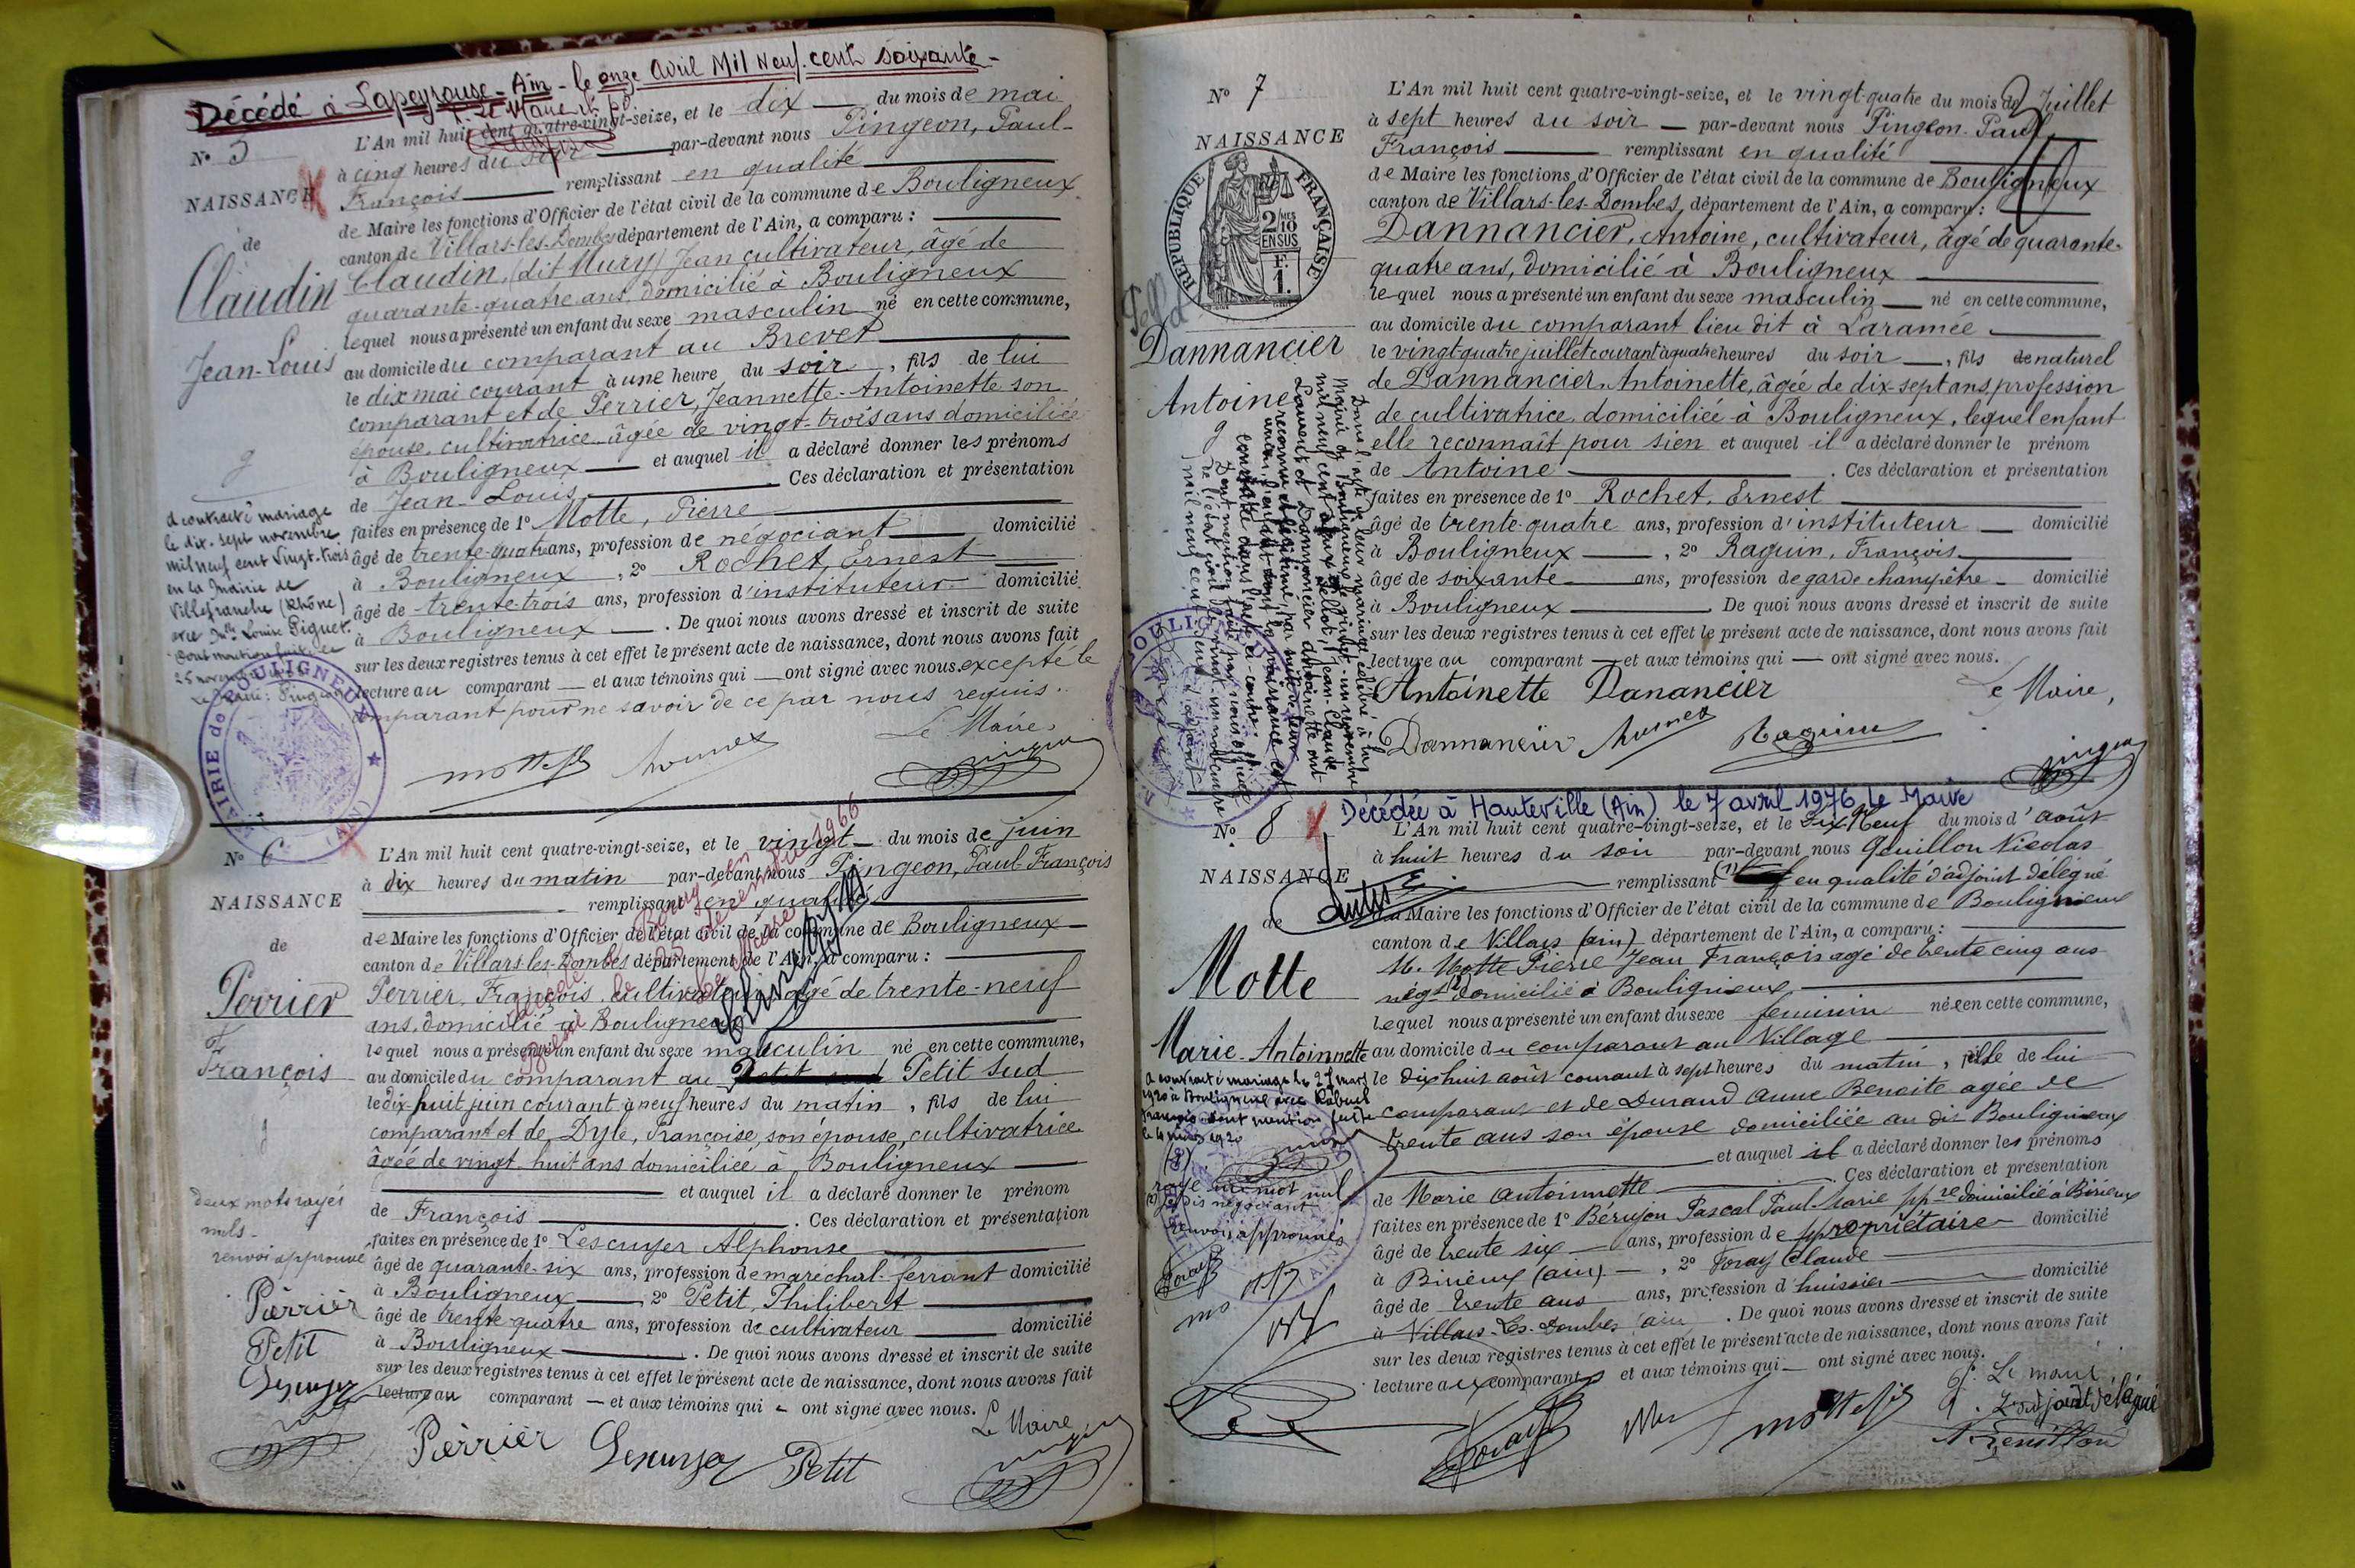 Décédé à Lapeyrouse - Ain - le onze Avril Mil Neuf cent soixante -
L'An mil huit cent quatre-vingt-seize, et le dix du mois de mai
N° 5
à cinq heures du soir par-devant nous Pingeon, Paul-
NAISSANCE
François remplissant en qualité
de Maire les fonctions d'Officier de l'état civil de la commune de Bouligneux
de
canton de Villars-les-Dombes département de l'Ain, a comparu :
Claudin
Claudin, (dit Mury) Jean cultivateur, âgé de
quarante-quatre ans, domicilié à Bouligneux
lequel nous a présenté un enfant du sexe masculin né en cette commune,
Jean-Louis
au domicile du comparant au Brevet
le dix mai courant à une heure du soir, fils de lui
comparant et de Perrier, Jeannette-Antoinette son
épouse, cultivatrice âgée de vingt-trois ans domiciliée
à Bouligneux et auquel il a déclaré donner les prénoms
de Jean-Louis. Ces déclaration et présentation
a contracté mariage
le dix-sept novembre
mil neuf cent vingt-trois
en la Mairie de
Villefranche (Rhône)
avec Mlle Louise Piguet.
Dont mention faite le
25 novembre
Le Maire: Pingeon
faites en présence de 1° Motte, Pierre
âgé de trente-quatre ans, profession de négociant domicilié
à Bouligneux, 2° Rochet, Ernest
âgé de trente-trois ans, profession d'instituteur domicilié
à Bouligneux. De quoi nous avons dressé et inscrit de suite
sur les deux registres tenus à cet effet le présent acte de naissance, dont nous avons fait
lecture au comparant et aux témoins qui ont signé avec nous, excepté le
comparant pour ne savoir de ce par nous requis.
Le Maire,
MAIRIE de BOULIGNEUX (AIN)
N° 6
L'An mil huit cent quatre-vingt-seize, et le vingt du mois de juin
à dix heures du matin par-devant nous Pingeon, Paul François
NAISSANCE
remplissant en qualité
de
de Maire les fonctions d'Officier de l'état civil de la commune de Bouligneux
canton de Villars-les-Dombes département de l'Ain, a comparu :
Perrier
Perrier, François, cultivateur, âgé de trente-neuf
ans, domicilié à Bouligneux
lequel nous a présenté un enfant du sexe masculin né en cette commune,
François
au domicile du comparant au Petit Sud
le dix-huit juin courant à neuf heures du matin, fils de lui
comparant et de Dyle, Françoise, son épouse, cultivatrice
âgée de vingt-huit ans domiciliée à Bouligneux
et auquel il a déclaré donner le prénom
deux mots rayés
nuls -
renvoi approuvé
de François. Ces déclaration et présentation
faites en présence de 1° Lescuyer Alphonse
âgé de quarante-six ans, profession de maréchal-ferrant domicilié
à Bouligneux, 2° Petit, Philibert
âgé de trente-quatre ans, profession de cultivateur domicilié
à Bouligneux. De quoi nous avons dressé et inscrit de suite
sur les deux registres tenus à cet effet le présent acte de naissance, dont nous avons fait
lecture au comparant et aux témoins qui ont signé avec nous.
Perrier
Petit
Lescuyer
Le Maire
Perrier Lescuyer Petit
N° 7
L'An mil huit cent quatre-vingt-seize, et le vingt-quatre du mois de Juillet
à sept heures du soir par-devant nous Pingeon Paul,
NAISSANCE
François remplissant en qualité
de Maire les fonctions d'Officier de l'état civil de la commune de Bouligneux
canton de Villars-les-Dombes, département de l'Ain, a comparu :
RÉPUBLIQUE FRANÇAISE
2/10 EN SUS
F. 1.
Dannancier, Antoine, cultivateur, âgé de quarante-
quatre ans, domicilié à Bouligneux
lequel nous a présenté un enfant du sexe masculin né en cette commune,
au domicile du comparant lieu dit à Laramée
Dannancier
le vingt-quatre juillet courant à quatre heures du soir, fils de naturel
de Dannancier Antoinette, âgée de dix-sept ans, profession
Antoine
de cultivatrice, domiciliée à Bouligneux, lequel enfant
elle reconnaît pour sien et auquel il a déclaré donner le prénom
de Antoine. Ces déclaration et présentation
faites en présence de 1° Rochet, Ernest
âgé de trente-quatre ans, profession d'instituteur domicilié
à Bouligneux, 2° Raguin, François
âgé de soixante ans, profession de garde champêtre domicilié
à Bouligneux. De quoi nous avons dressé et inscrit de suite
sur les deux registres tenus à cet effet le présent acte de naissance, dont nous avons fait
lecture au comparant et aux témoins qui ont signé avec nous.
Antoinette Danancier
Le Maire,
Dannancier Raguin
Décédée à Hauteville (Ain) le 7 avril 1976 Le Maire
N° 8
L'An mil huit cent quatre-vingt-seize, et le Dix-Neuf du mois d'août
à huit heures du soir par-devant nous Genillon Nicolas
NAISSANCE
remplissant (1) en qualité d'adjoint délégué
de
Maire les fonctions d'Officier de l'état civil de la commune de Bouligneux
canton de Villars (ain) département de l'Ain, a comparu :
Motte
M. Motte Pierre Jean François agé de trente cinq ans
négt (2) domicilié à Bouligneux
lequel nous a présenté un enfant du sexe féminin née en cette commune,
Marie-Antoinnette
au domicile du comparant au Village
le dix huit août courant à sept heures du matin, fille de lui
comparant et de Durand Anne Benoite agée de
trente ans son épouse domiciliée au dit Bouligneux
et auquel il a déclaré donner les prénoms
a contracté mariage le 27 mars
1920 à Bouligneux avec Rabuel
François dont mention faite
le 4 mars 1920
rayé un mot nul
(2) négociant
renvois approuvés
de Marie Antoinnette. Ces déclaration et présentation
faites en présence de 1° Béruyon Pascal Paul Marie ppre domicilié à Birieux
âgé de trente six ans, profession de propriétaire domicilié
à Birieux (ain), 2° Foray Claude
âgé de trente ans ans, profession d'huissier domicilié
à Villars-les-Dombes (ain). De quoi nous avons dressé et inscrit de suite
sur les deux registres tenus à cet effet le présent acte de naissance, dont nous avons fait
lecture aux comparants et aux témoins qui ont signé avec nous.
Pr Le maire
L'adjoint délégué
Foray Motte
N Genillon